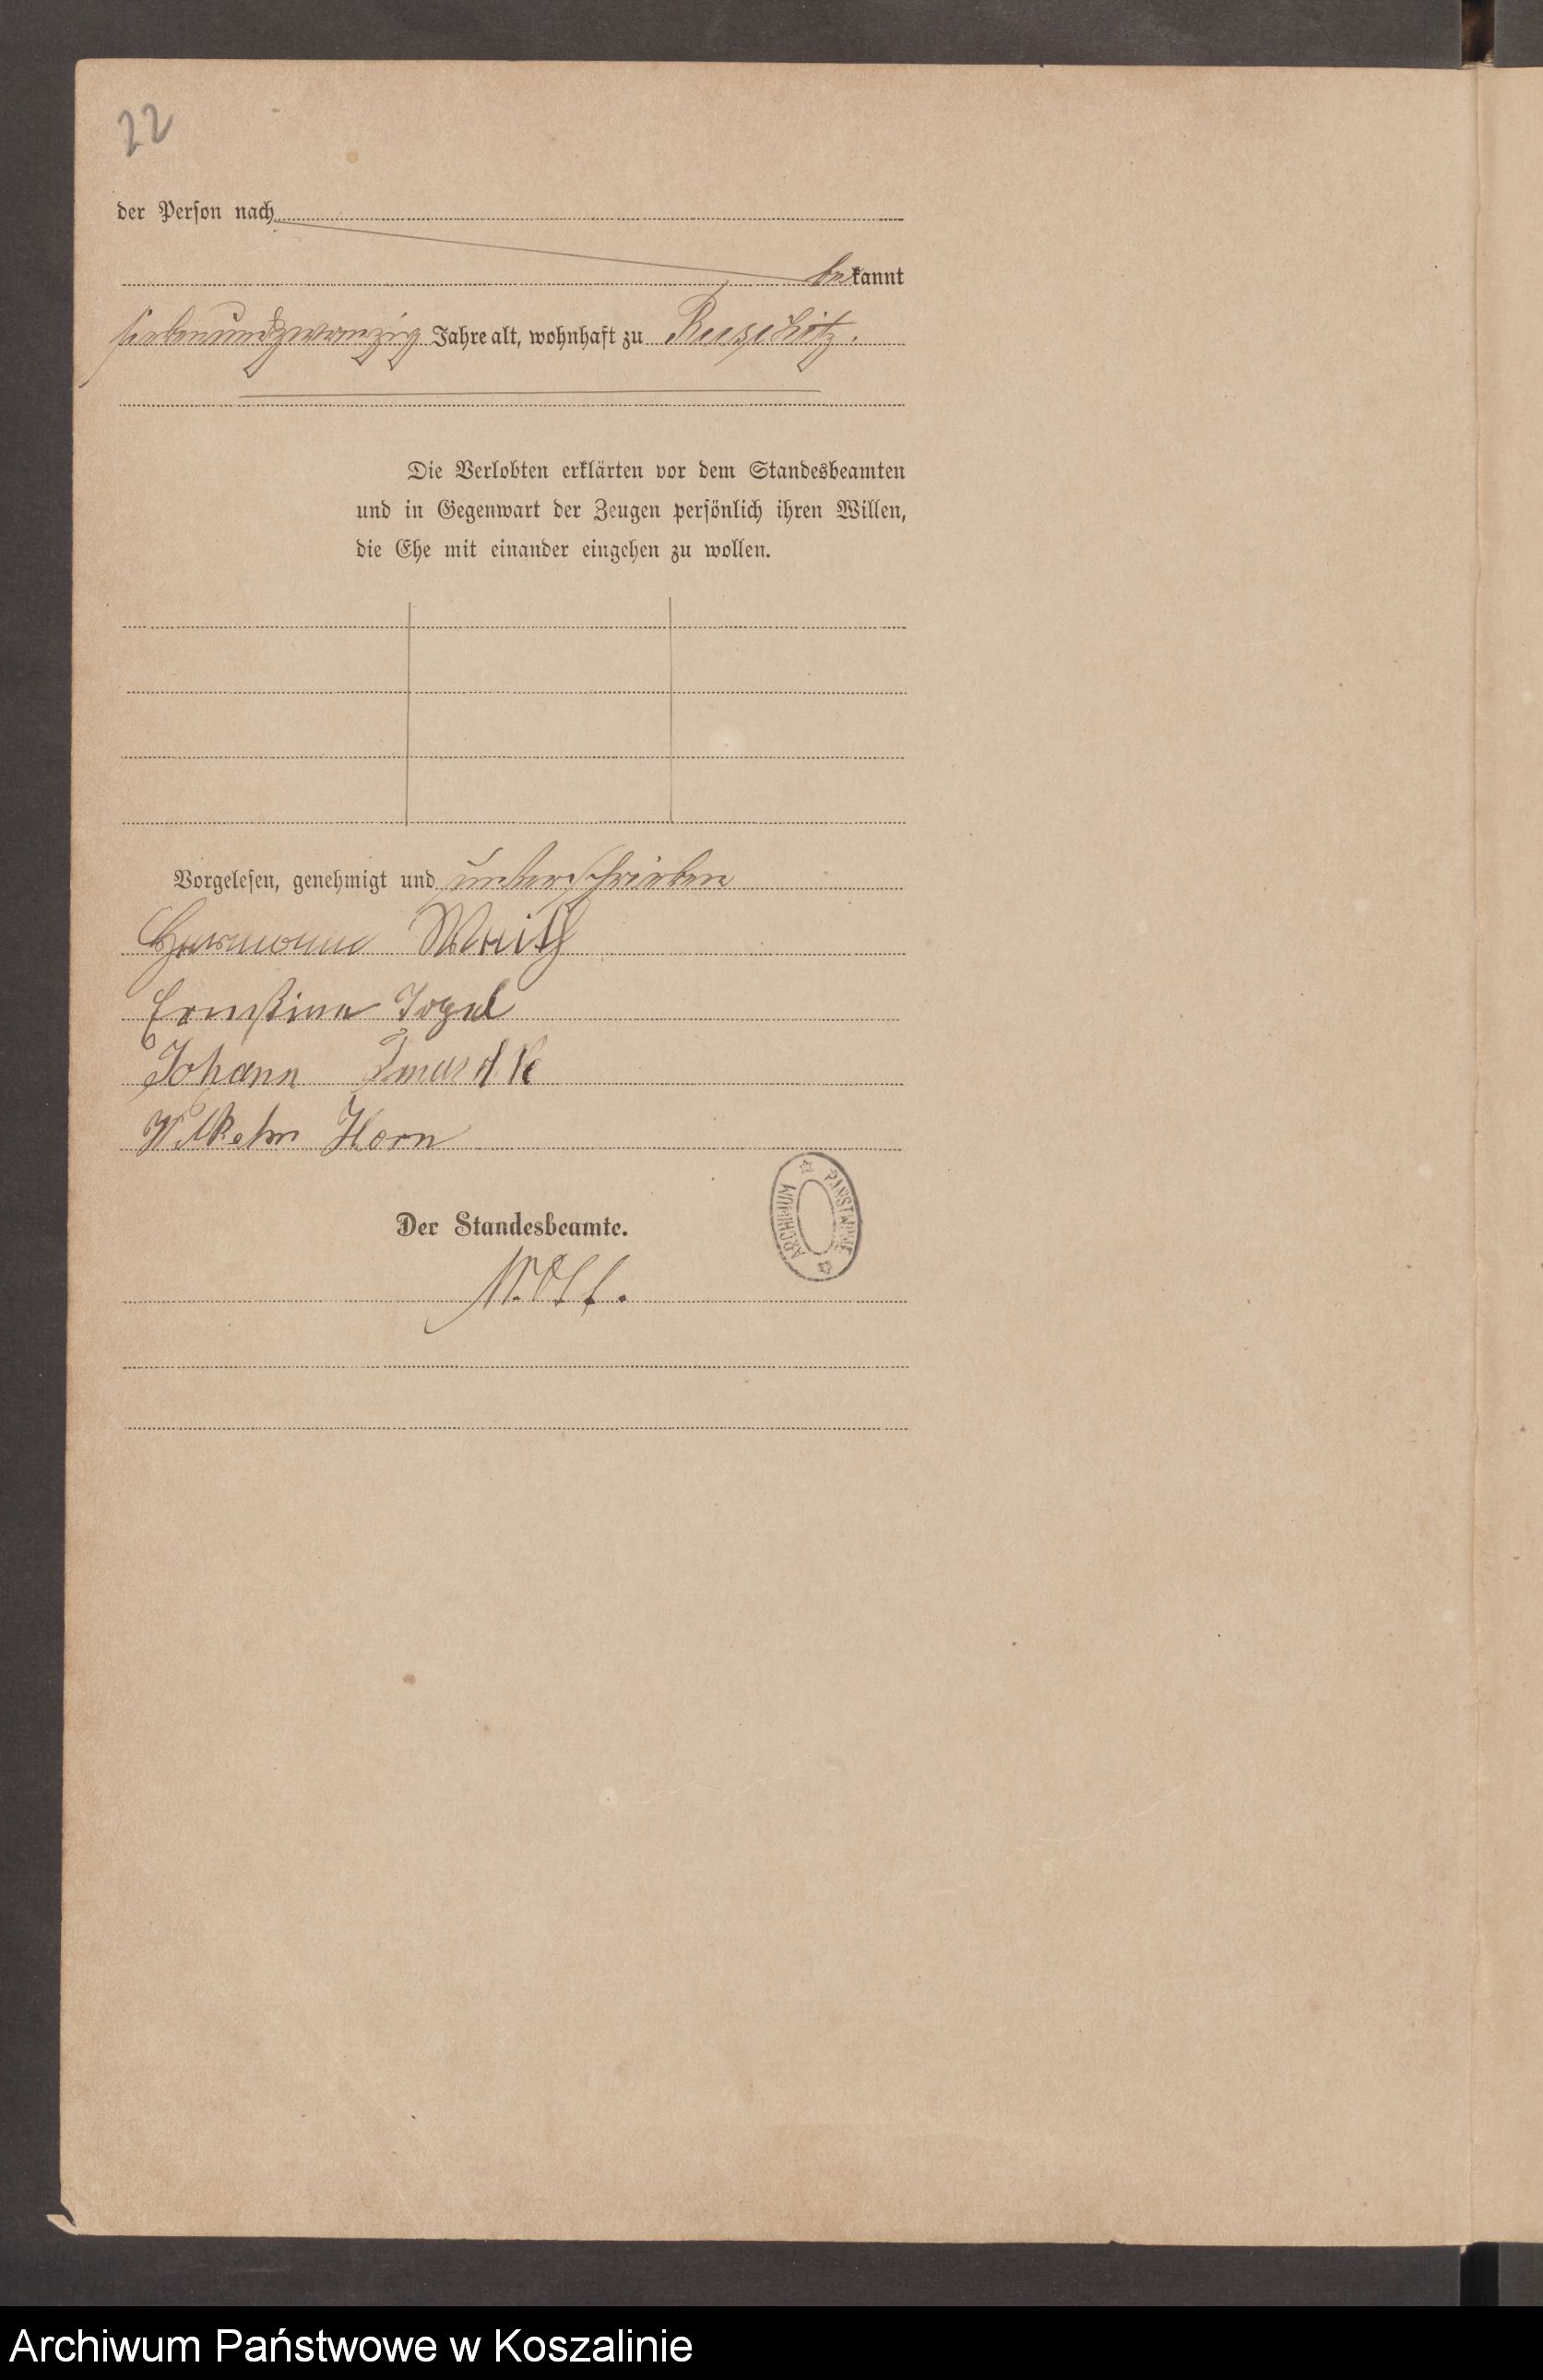 22
der Person nach
bekannt
siebenundzwanzig Jahre alt, wohnhaft zu Ruschütz.
Die Verlobten erklärten vor dem Standesbeamten
und in Gegenwart der Zeugen persönlich ihren Willen,
die Ehe mit einander eingehen zu wollen.
Vorgelesen, genehmigt und unterschrieben
Hermann
Ernstine
Johann
Wilhelm Horn
Der Standesbeamte.
ARCHIWUM PAŃSTWOWE
Archiwum Państwowe w Koszalinie